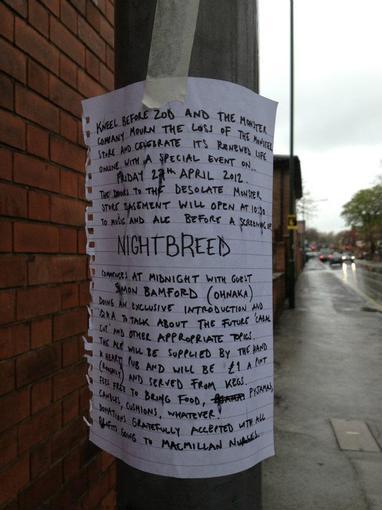 KNEEL BEFORE ZOD AND THE MONSTER
COMPANY MOURN THE LOSS OF THE MONSTER
STORE AND CELEBRATE IT'S RENEWED LIFE
ONLINE WITH A SPECIAL EVENT ON...
FRIDAY 27th APRIL 2012.
THE DOORS TO THE DESOLATE MONSTER
STORE BASEMENT WILL OPEN AT 10:30
TO MUSIC AND ALE BEFORE A SCREENING OF
NIGHTBREED
COMMENCES AT MIDNIGHT WITH GUEST
SIMON BAMFORD (OHNAKA)
DOING AN EXCLUSIVE INTRODUCTION AND
Q&A TO TALK ABOUT THE FUTURE 'CABAL
CUT' AND OTHER APPROPRIATE TOPICS.
THE ALE WILL BE SUPPLIED BY THE HAND
& HEART PUB AND WILL BE £1 A PINT
(ROUGHLY) AND SERVED FROM KEGS.
FEEL FREE TO BRING FOOD, PYJAMAS,
CANDLES, CUSHIONS, WHATEVER!
DONATIONS GRATEFULLY ACCEPTED WITH ALL
PROFITS GOING TO MACMILLAN NURSES.